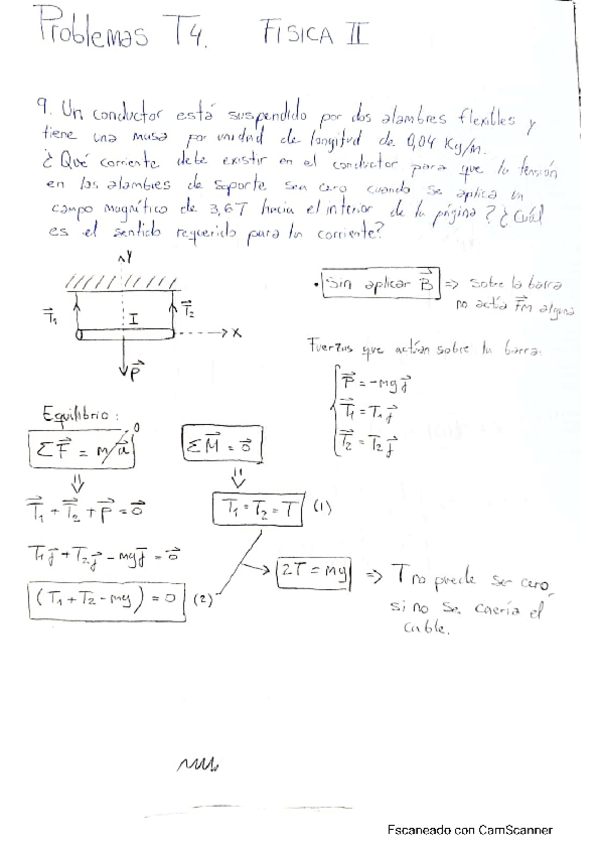 Problemas T4. FISICA II
9. Un conductor está suspendido por dos alambres flexibles y
tiene una masa por unidad de longitud de 0,04 Kg/m.
¿Qué corriente debe existir en el conductor para que la tensión
en los alambres de soporte sea cero cuando se aplica un
campo magnético de 3,6T hacia el interior de la página? ¿Cuál
es el sentido requerido para la corriente?
Y
T⃗₁ I T⃗₂
X
P⃗
• Sin aplicar B⃗ => Sobre la barra
no actúa F⃗m alguna
Fuerzas que actúan sobre la barra:
P⃗ = -mg j⃗
T⃗₁ = T₁ j⃗
T⃗₂ = T₂ j⃗
Equilibrio:
ΣF⃗ = m a⃗ 0 ΣM⃗ = 0⃗
T⃗₁ + T⃗₂ + P⃗ = 0⃗ T₁ = T₂ = T (1)
T₁ j⃗ + T₂ j⃗ - mg j⃗ = 0⃗
(T₁ + T₂ - mg) = 0 (2)
2T = mg => T no puede ser cero,
si no se caería el
cable.
Escaneado con CamScanner